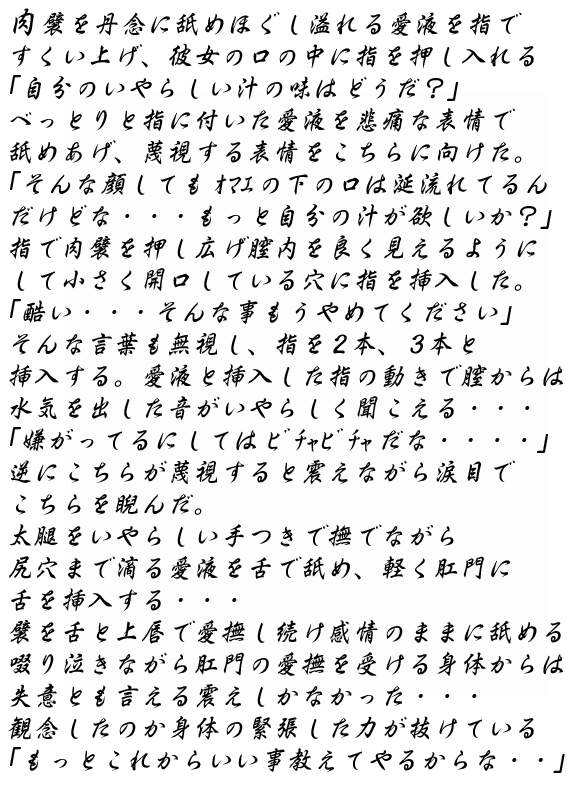 肉襞を丹念に舐めほぐし溢れる愛液を指で
すくい上げ、彼女の口の中に指を押し入れる
「自分のいやらしい汁の味はどうだ?」
べっとりと指に付いた愛液を悲痛な表情で
舐めあげ、蔑視する表情をこちらに向けた。
「そんな顔してもｵﾏｴの下の口は涎流れてるん
だけどな・・・もっと自分の汁が欲しいか?」
指で肉襞を押し広げ膣内を良く見えるように
して小さく開口している穴に指を挿入した。
「酷い・・・そんな事もうやめてください」
そんな言葉も無視し、指を2本、3本と
挿入する。愛液と挿入した指の動きで膣からは
水気を出した音がいやらしく聞こえる・・・
「嫌がってるにしてはﾋﾞﾁｬﾋﾞﾁｬだな・・・・」
逆にこちらが蔑視すると震えながら涙目で
こちらを睨んだ。
太腿をいやらしい手つきで撫でながら
尻穴まで滴る愛液を舌で舐め、軽く肛門に
舌を挿入する・・・
襞を舌と上唇で愛撫し続け感情のままに舐める
啜り泣きながら肛門の愛撫を受ける身体からは
失意とも言える震えしかなかった・・・
観念したのか身体の緊張した力が抜けている
「もっとこれからいい事教えてやるからな・・」